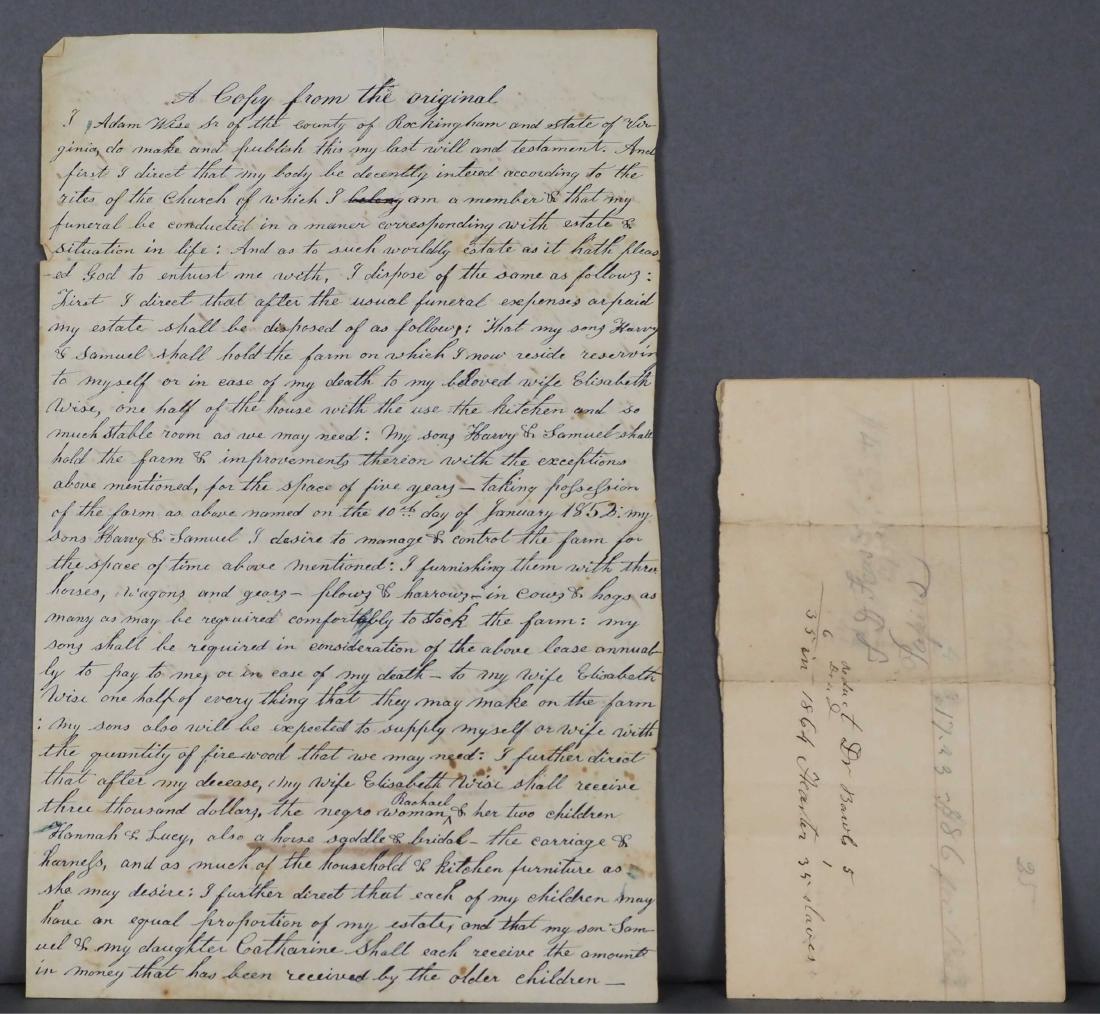 A Copy from the original
I, Adam Wise Sr of the county of Rockingham and estate of Vir-
ginia, do make and publish this my last will and testament. And
first I direct that my body be decently intered according to the
rites of the Church of which I belong am a member & that my
funeral be conducted in a maner corresponding with estate &
situation in life: And as to such worldly estate as it hath pleas
-ed God to entrust me with, I dispose of the same as follows:
First I direct that after the usual funeral expenses ar paid
my estate shall be disposed of as follows: That my sons Harvy
& Samuel shall hold the farm on which I now reside reservin
to myself or in case of my death to my beloved wife Elisabeth
Wise, one half of the house with the use the kitchen and so
much stable room as we may need: My sons Harvy & Samuel shall
hold the farm & improvements thereon with the exceptions
above mentioned, for the space of five years – taking possession
of the farm as above named on the 10th day of January 1853: my
sons Harvy & Samuel I desire to manage & control the farm for
the space of time above mentioned: I furnishing them with three
horses, wagons and gears – plows & harrows – in cows & hogs as
many as may be required comfortably to stock the farm: my
sons shall be required in consideration of the above lease annual-
ly to pay to me, or in case of my death – to my wife Elisabeth
Wise one half of every thing that they may make on the farm
: my sons also will be expected to supply myself or wife with
the quantity of fire wood that we may need: I further direct
that after my decease, my wife Elisabeth Wise shall receive
three thousand dollars, the negro woman Rachael & her two children
Hannah & Lucy, also a horse saddle & bridal – the carriage &
harness, and as much of the household & kitchen furniture as
she may desire: I further direct that each of my children may
have an equal proportion of my estate, and that my son Sam-
uel & my daughter Catharine shall each receive the amount
in money that has been received by the older children –
25
317.23
$86
Dr
5
1
6
35 in 1864 35 slaves